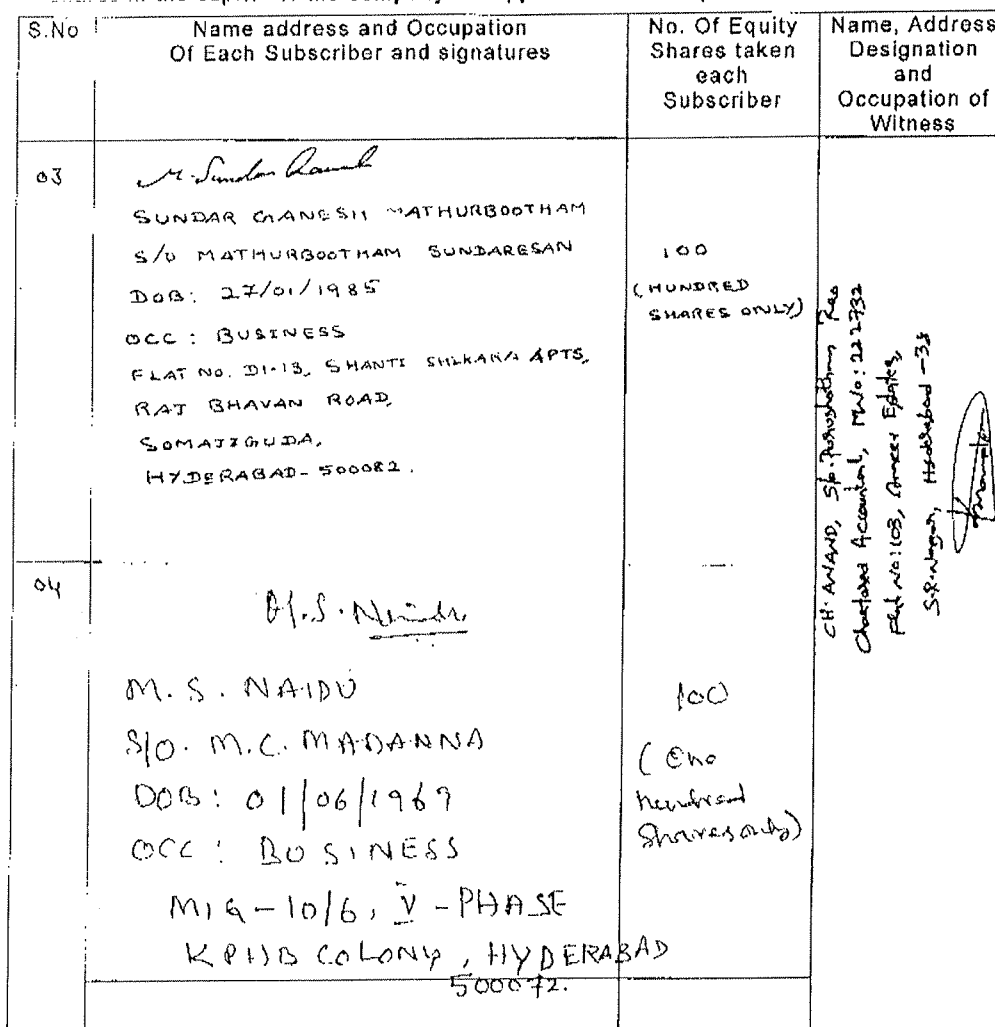 S.No
Name address and Occupation
Of Each Subscriber and signatures
No. Of Equity
Shares taken
each
Subscriber
Name, Address
Designation
and
Occupation of
Witness
03
SUNDAR GANESH MATHURBOOTHAM
S/O MATHURBOOTHAM SUNDARESAN
DOB: 27/01/1985
OCC : BUSINESS
FLAT NO. D1-13, SHANTI SHIKARA APTS,
RAJ BHAVAN ROAD,
SOMAJIGUDA,
HYDERABAD - 500082.
100
(HUNDRED
SHARES ONLY)
CH. ANAND, S/o. Purushotham Rao
Chartered Accountant, M.No: 222732
Flat No: 103, Estates,
S.R. Nagar, Hyderabad - 38
04
M. S. NAIDU
S/O. M.C. MADANNA
DOB: 01/06/1969
OCC : BUSINESS
MIG - 10/6, V - PHASE
KPHB COLONY, HYDERABAD
500072.
100
(One
hundred
Shares only)